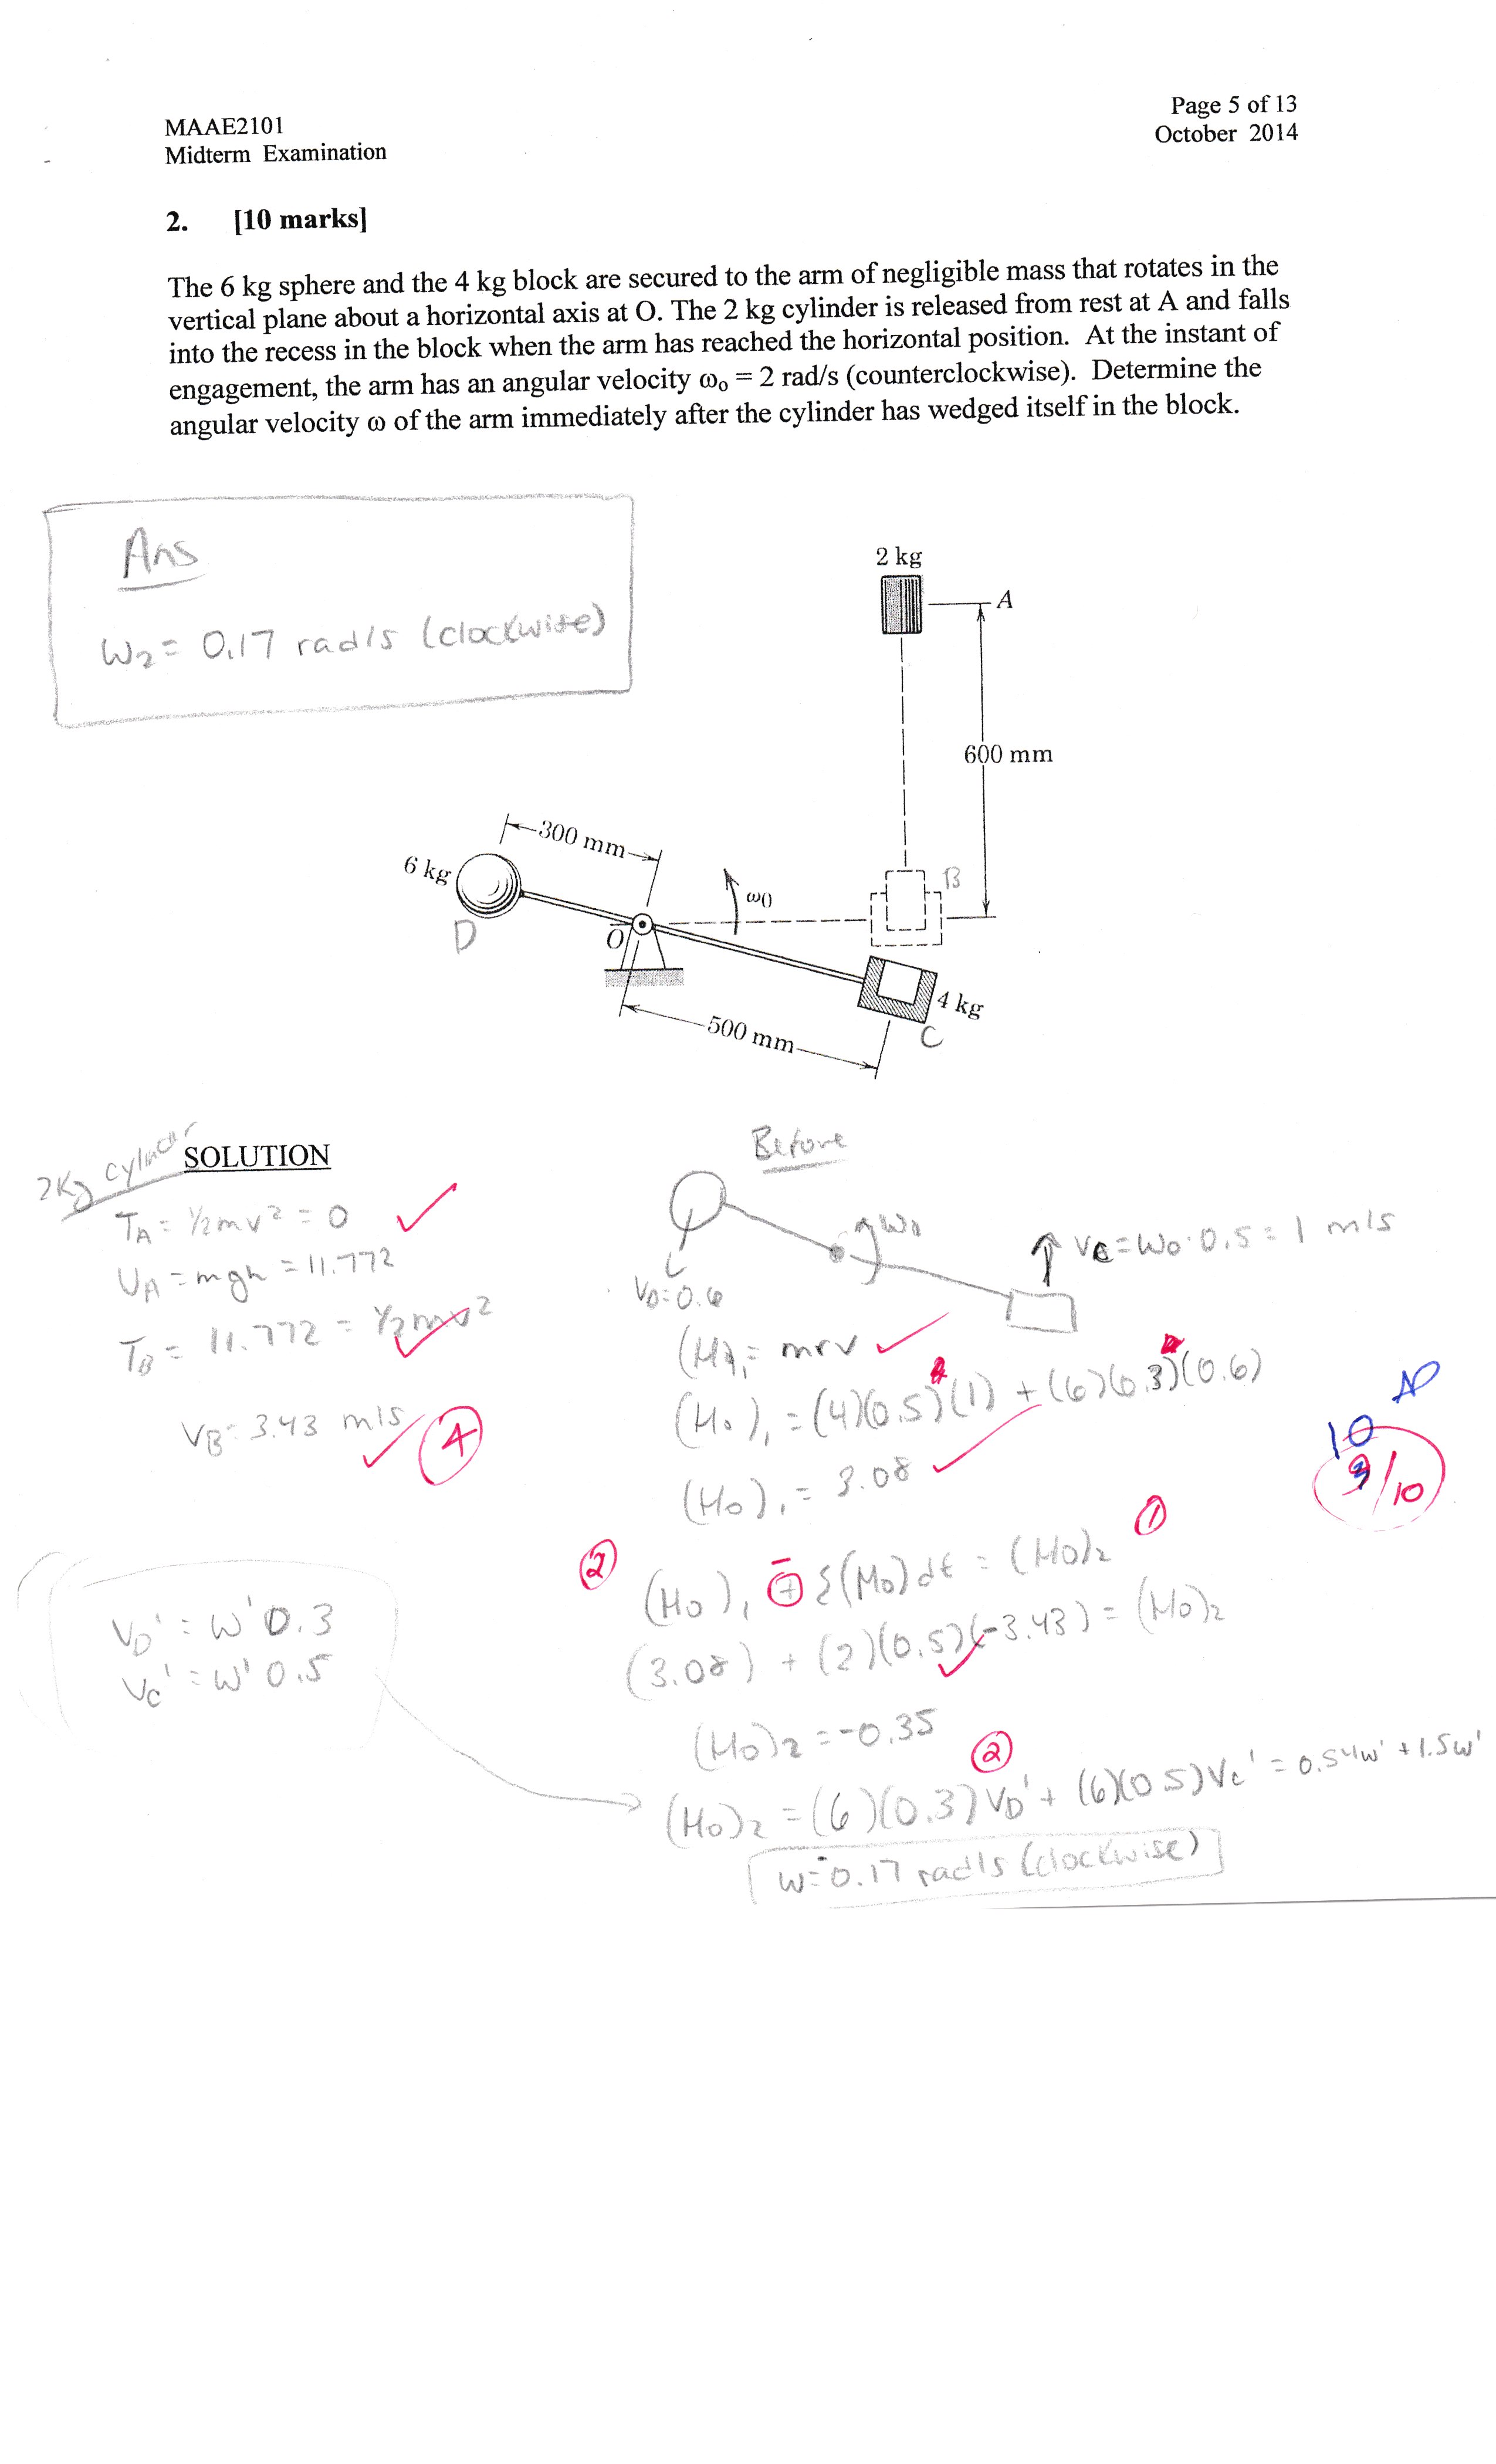 MAAE2101
Midterm Examination
Page 5 of 13
October 2014
2. [10 marks]
The 6 kg sphere and the 4 kg block are secured to the arm of negligible mass that rotates in the
vertical plane about a horizontal axis at O. The 2 kg cylinder is released from rest at A and falls
into the recess in the block when the arm has reached the horizontal position. At the instant of
engagement, the arm has an angular velocity ω₀ = 2 rad/s (counterclockwise). Determine the
angular velocity ω of the arm immediately after the cylinder has wedged itself in the block.
Ans
W₂ = 0.17 rad/s (clockwise)
2 kg
A
600 mm
300 mm
6 kg
D
O
ω0
B
4 kg
C
500 mm
2Kg cylinder
SOLUTION
T_A = ½mv² = 0
U_A = mgh = 11.772
T_B = 11.772 = ½mv²
V_B = 3.43 m/s
4
Before
W₀
V_C = W₀·0.5 = 1 m/s
V_D = 0.6
(H₀)₁ = mrv
(H₀)₁ = (4)(0.5)(1) + (6)(0.3)(0.6)
(H₀)₁ = 3.08
AP
10
9/10
2
(H₀)₁ + Σ(M₀)dt = (H₀)₂
1
(3.08) + (2)(0.5)(-3.43) = (H₀)₂
(H₀)₂ = -0.35
2
V_D' = W'0.3
V_C' = W'0.5
(H₀)₂ = (6)(0.3)V_D' + (6)(0.5)V_C' = 0.54W' + 1.5W'
W = -0.17 rad/s (clockwise)